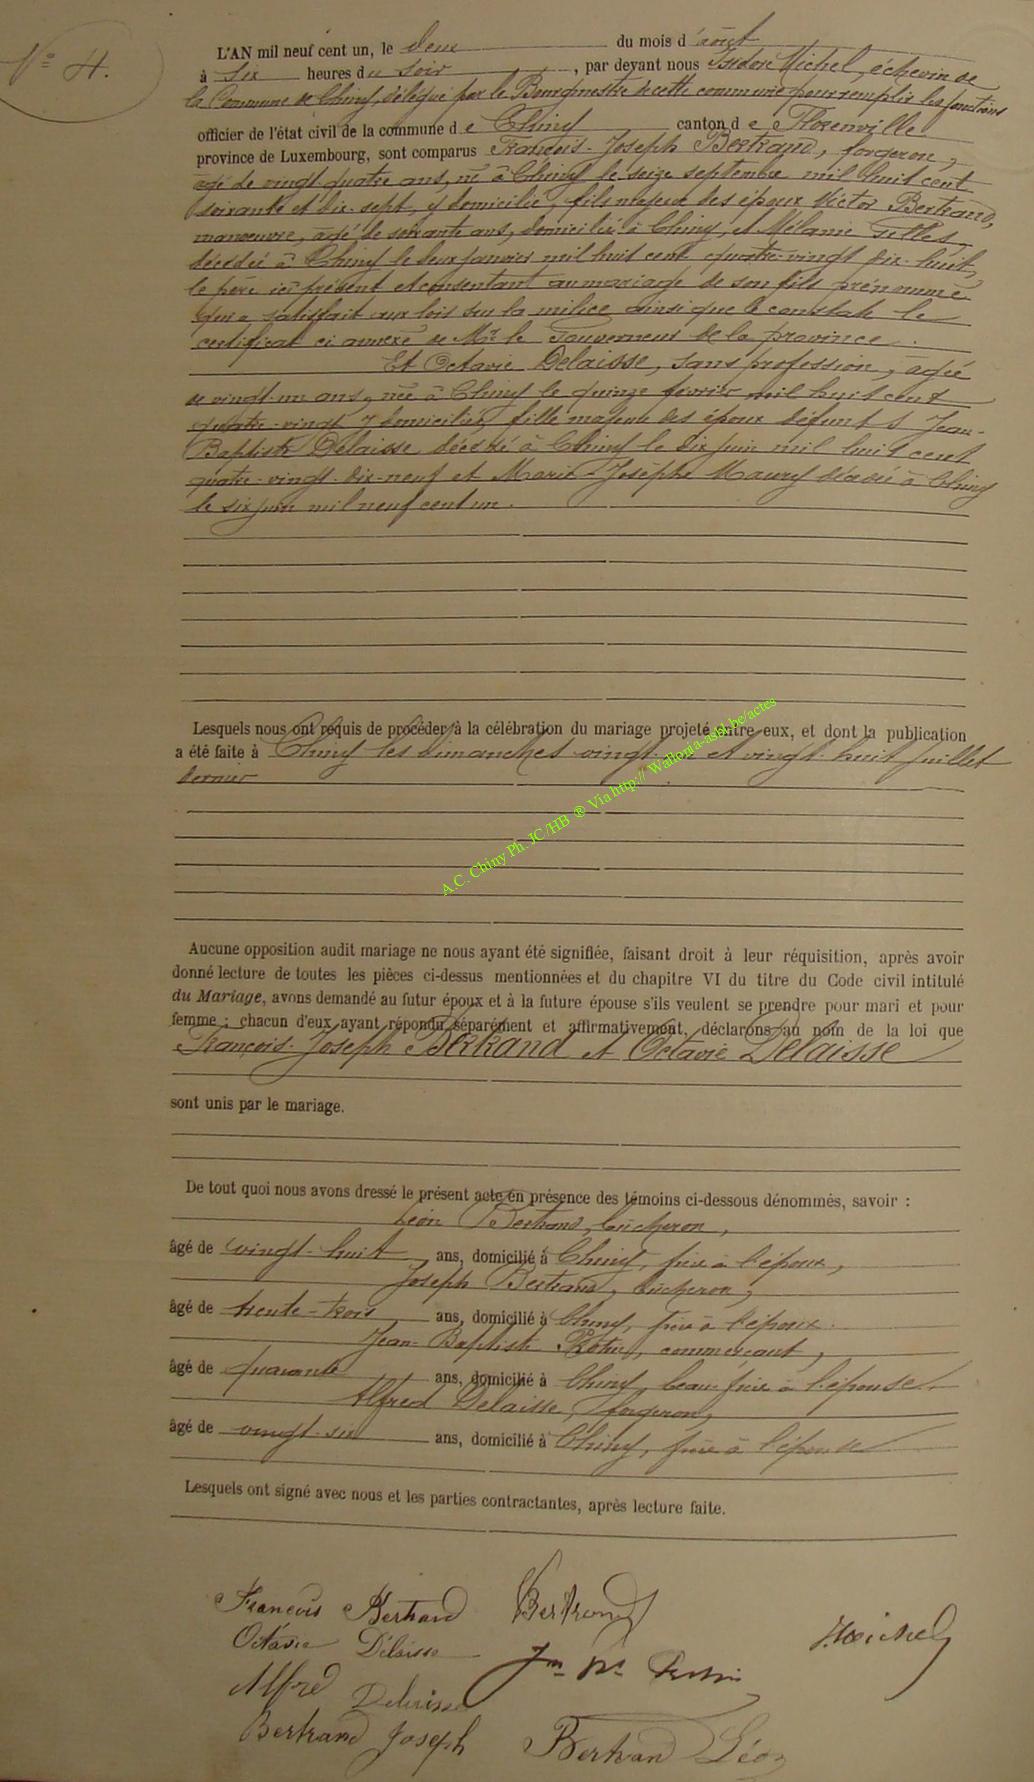 N° 4.
L'AN mil neuf cent un, le deux du mois d'août
à six heures du soir, par devant nous Isidore Michel, échevin de
la Commune de Chiny, délégué par le Bourgmestre de cette commune pour remplir les fonctions
officier de l'état civil de la commune de Chiny canton de Florenville
province de Luxembourg, sont comparus François-Joseph Bertrand, forgeron,
âgé de vingt-quatre ans, né à Chiny le seize septembre mil huit cent
soixante et dix-sept, y domicilié, fils majeur des époux Victor Bertrand,
manoeuvre, âgé de soixante ans, domicilié à Chiny, et Mélanie Gilles,
décédée à Chiny le deux janvier mil huit cent quatre-vingt dix-huit,
le père ici présent et consentant au mariage de son fils prénommé
qui a satisfait aux lois sur la milice ainsi que le constate le
certificat ci annexé de Mr le Gouverneur de la province.
Et Octavie Delaisse, sans profession, âgée
de vingt-un ans, née à Chiny le quinze février mil huit cent
quatre-vingt y domiciliée, fille majeure des époux défunts Jean-
Baptiste Delaisse décédé à Chiny le dix juin mil huit cent
quatre-vingt-dix-neuf et Marie-Josèphe Maury décédée à Chiny
le six juin mil neuf cent un.
Lesquels nous ont requis de procéder à la célébration du mariage projeté entre eux, et dont la publication
a été faite à Chiny les dimanches vingt-un et vingt-huit juillet
dernier
A.C. Chiny Ph. JC/HB ® Via http:// Wallonia-asbl.be/actes
Aucune opposition audit mariage ne nous ayant été signifiée, faisant droit à leur réquisition, après avoir
donné lecture de toutes les pièces ci-dessus mentionnées et du chapitre VI du titre du Code civil intitulé
du Mariage, avons demandé au futur époux et à la future épouse s'ils veulent se prendre pour mari et pour
femme : chacun d'eux ayant répondu séparément et affirmativement, déclarons au nom de la loi que
François-Joseph Bertrand et Octavie Delaisse
sont unis par le mariage.
De tout quoi nous avons dressé le présent acte en présence des témoins ci-dessous dénommés, savoir :
Léon Bertrand, bûcheron,
âgé de vingt-huit ans, domicilié à Chiny, frère à l'époux,
Joseph Bertrand, bûcheron,
âgé de trente-trois ans, domicilié à Chiny, frère à l'époux.
Jean-Baptiste commerçant,
âgé de quarante ans, domicilié à Chiny, beau-frère à l'épouse.
Alfred Delaisse, forgeron,
âgé de vingt-six ans, domicilié à Chiny, frère à l'épouse
Lesquels ont signé avec nous et les parties contractantes, après lecture faite.
François Bertrand Bertrand
Octavie Delaisse Michel
Alfred Delaisse Jn Bte
Bertrand Joseph Bertrand Léon